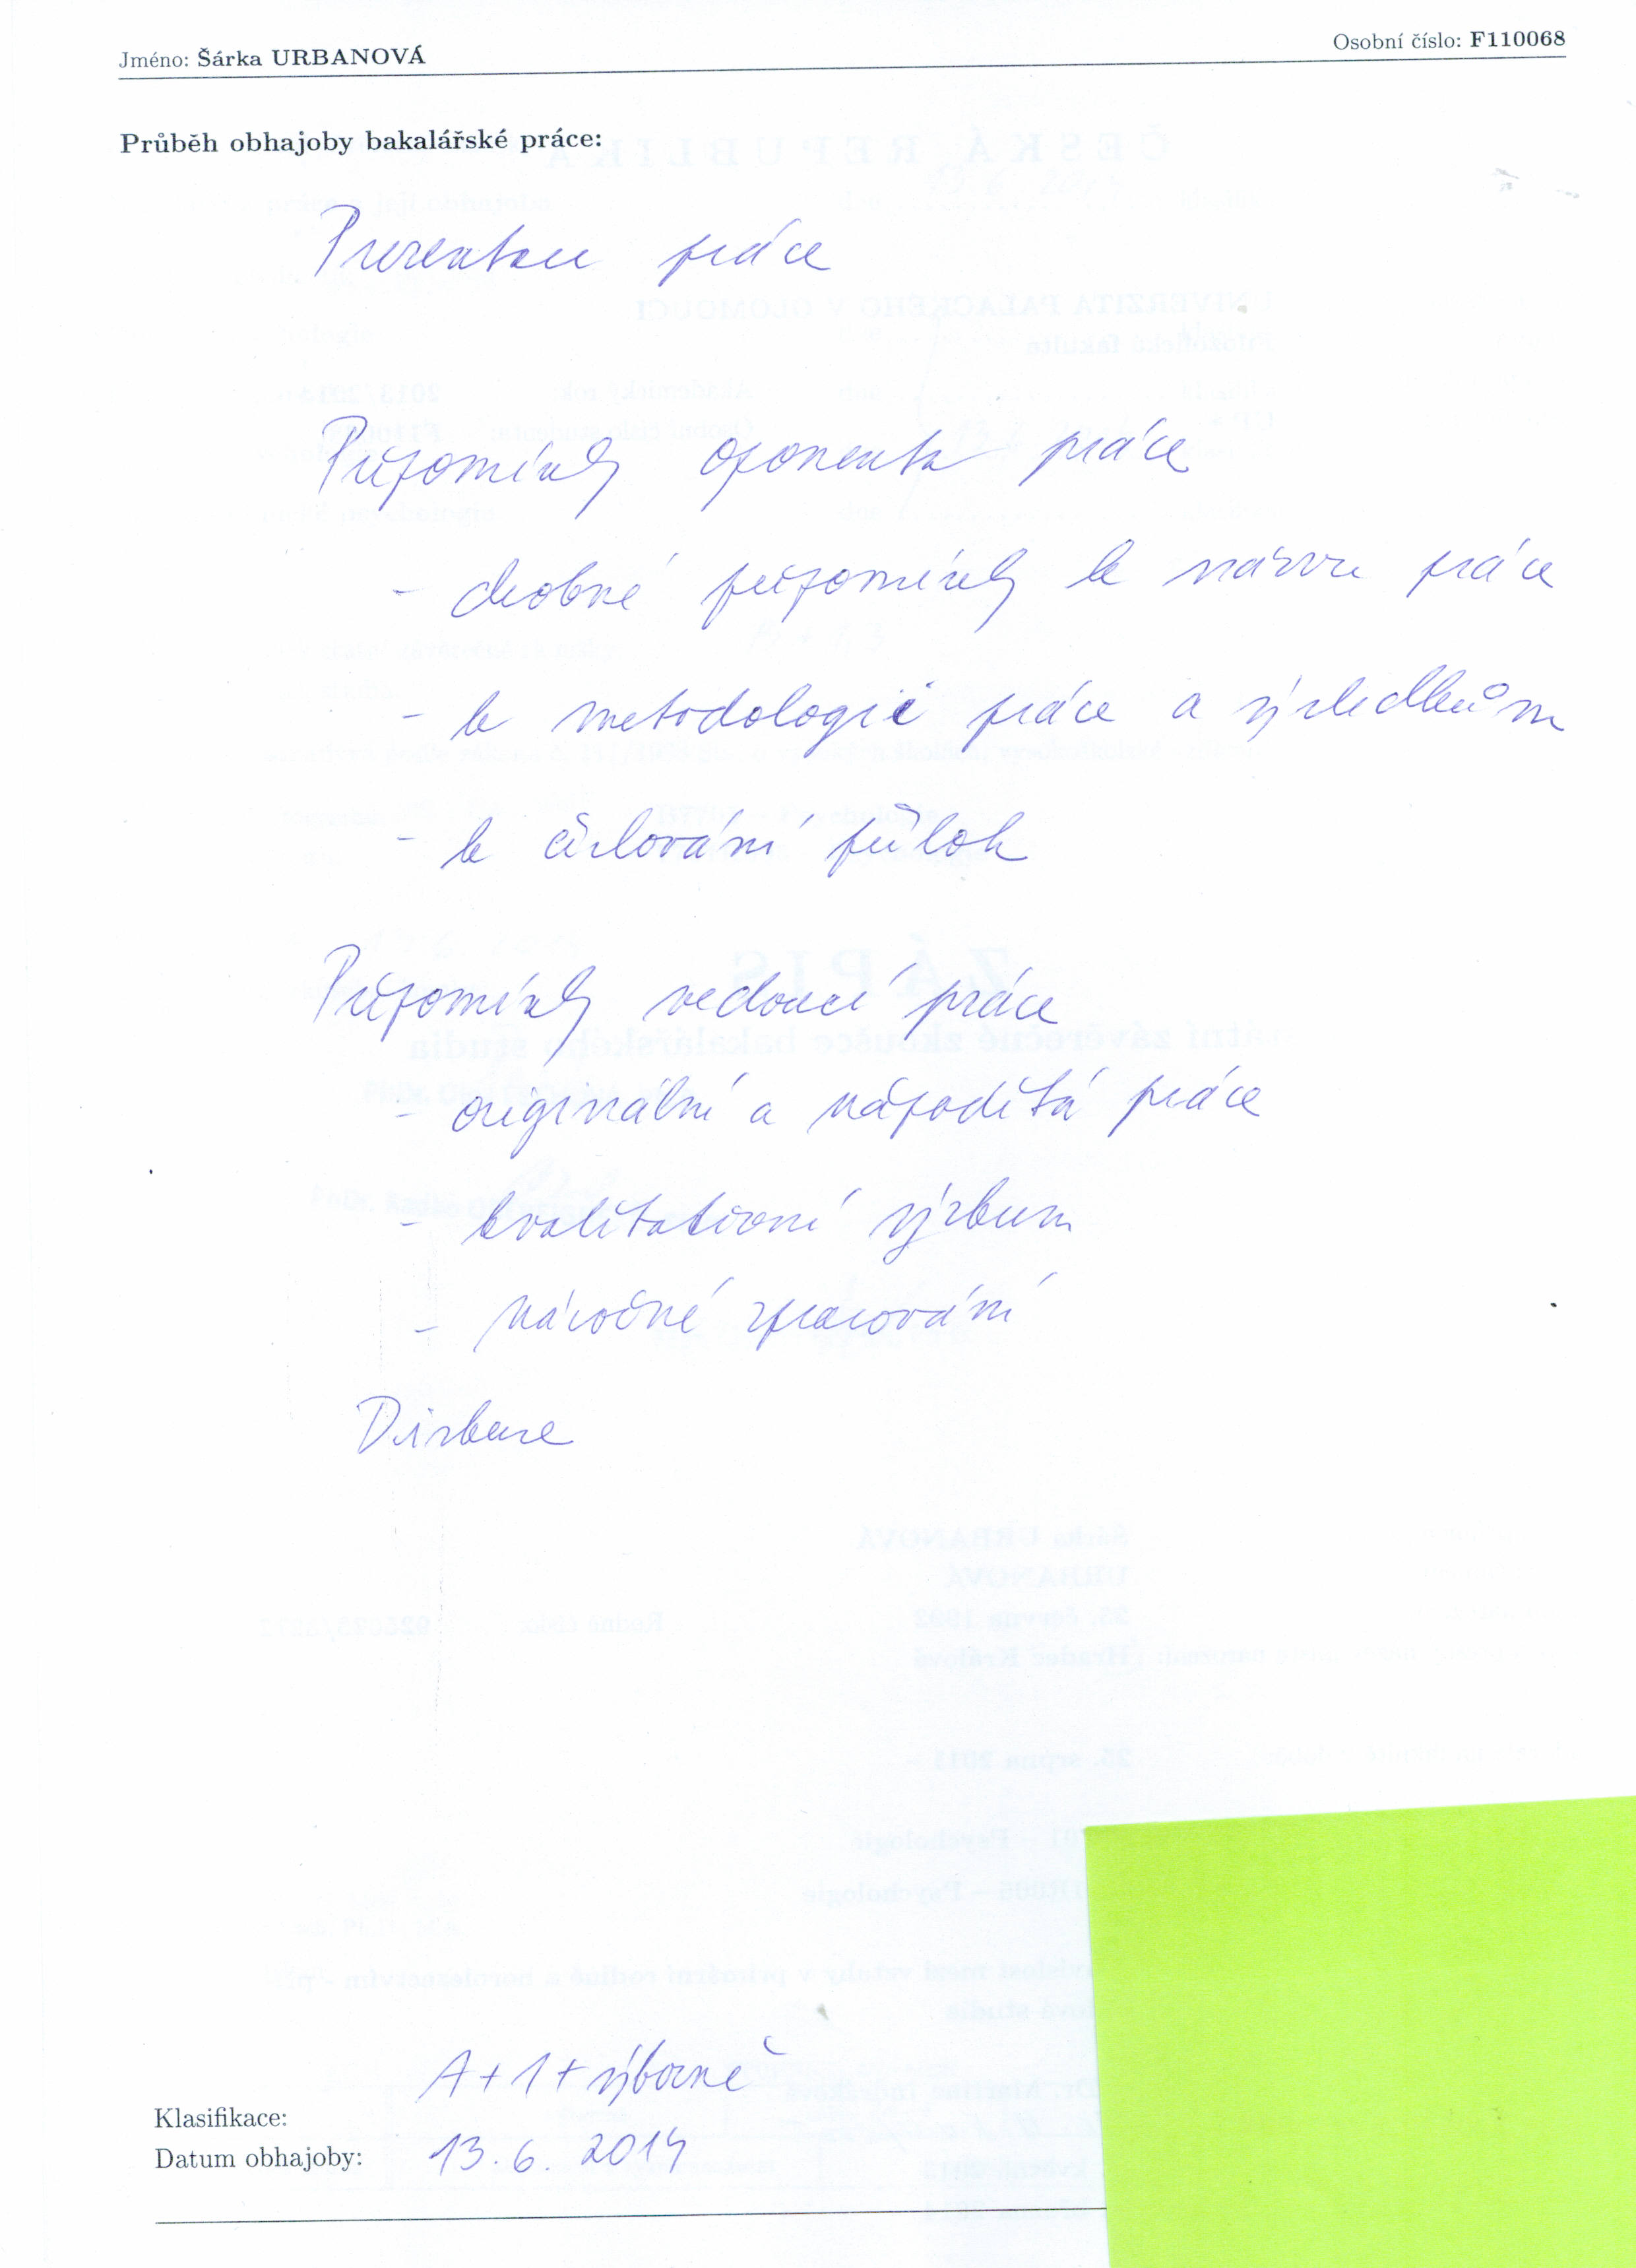 Jméno: Šárka URBANOVÁ
Osobní číslo: F110068
Průběh obhajoby bakalářské práce:
Prezentace práce
Připomínky oponenta práce
- drobné připomínky k názvu práce
- k metodologii práce a výsledkům
- k číslování příloh
Připomínky vedoucí práce
- originální a nápaditá práce
- kvalitativní výzkum
- náročné zpracování
Diskuse
A+1+výborně
Klasifikace:
Datum obhajoby: 13.6. 2014